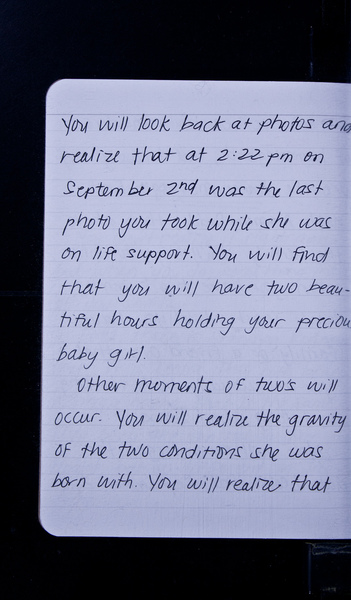 You will look back at photos and
realize that at 2:22pm on
September 2nd was the last
photo you took while she was
on life support. You will find
that you will have two beau-
tiful hours holding your precious
baby girl.
Other moments of two's will
occur. You will realize the gravity
of the two conditions she was
born with. You will realize that